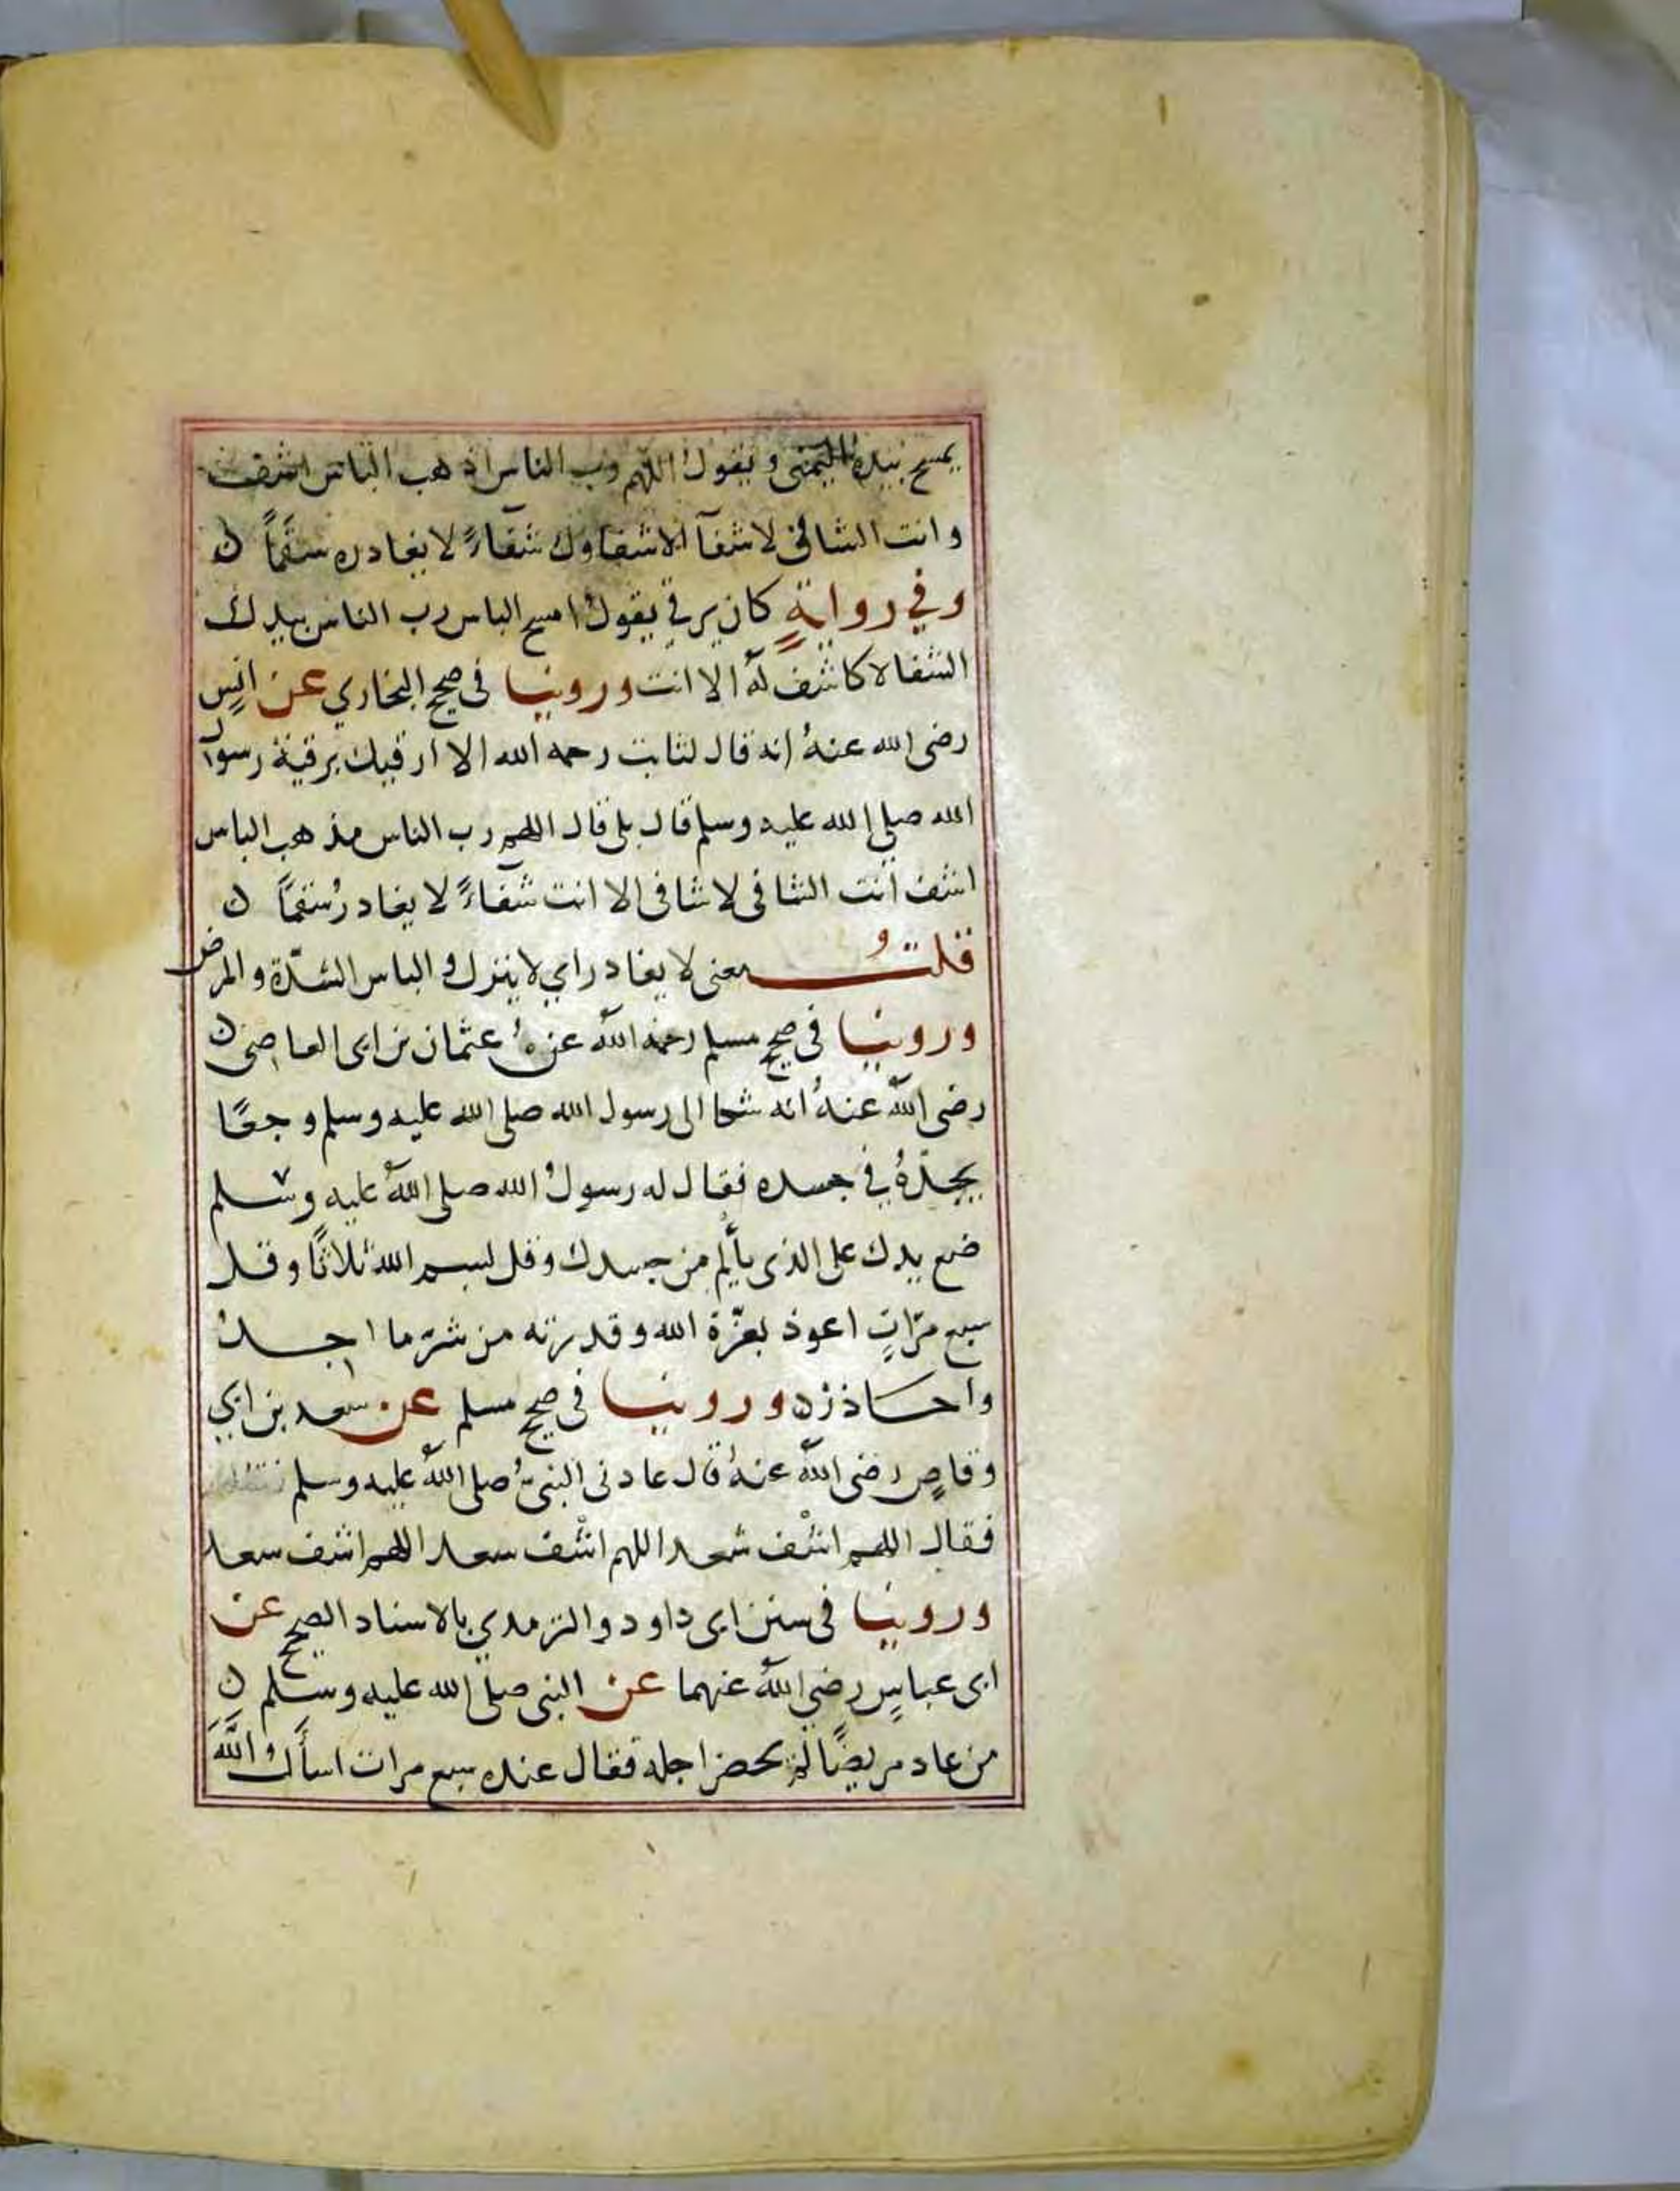 يمسح بيده اليمنى ويقول اللهم رب الناس اذهب الباس اشف
وانت الشافي لا شفآ الا شفاوك شفاءً لا يغادره سقمًا ن
وفي روايةٍ كان يرقي يقول امسح الباس رب الناس بيدك
الشفا لا كاشف له الا انت وروينا في صحيح البخاري عن انسٍ
رضي الله عنهُ انه قال لثابت رحمه الله الا ارقيك برقية رسول
الله صلى الله عليه وسلم قال بلى قال اللهم رب الناس مذهب الباس
اشف انت الشافي لا شافي الا انت شفاءً لا يغادرُ سقمًا ن
قلتُ معنى لا يغادر اي لا يترك والباس الشدّة والمرض
وروينا في صحيح مسلم رحمه الله عن عثمان بن ابي العاصي ن
رضي الله عنهُ انه شكا الى رسول الله صلى الله عليه وسلم وجعًا
يجدّهُ في جسده فقال له رسولُ الله صلى الله عليه وسلم
ضع يدك على الذي يألم من جسدك وقل بسم الله ثلاثًا وقل
سبع مرّاتٍ اعوذ بعزّة الله وقدرته من شرّ ما اجدُ
واحاذره وروينا في صحيح مسلم عن سعد بن ابي
وقاصٍ رضي الله عنهُ قال عادني النبيُّ صلى الله عليه وسلم
فقال اللهم اشْف سعدا اللهم اشْف سعدا اللهم اشف سعدا
وروينا في سنن ابى داود والترمدي بالاسناد الصحيح عن
ابى عباسٍ رضي الله عنهما عن النبي صلى الله عليه وسلم ن
من عاد مريضًا لم يحضر اجله فقال عنده سبع مرات اسأل اللهَ